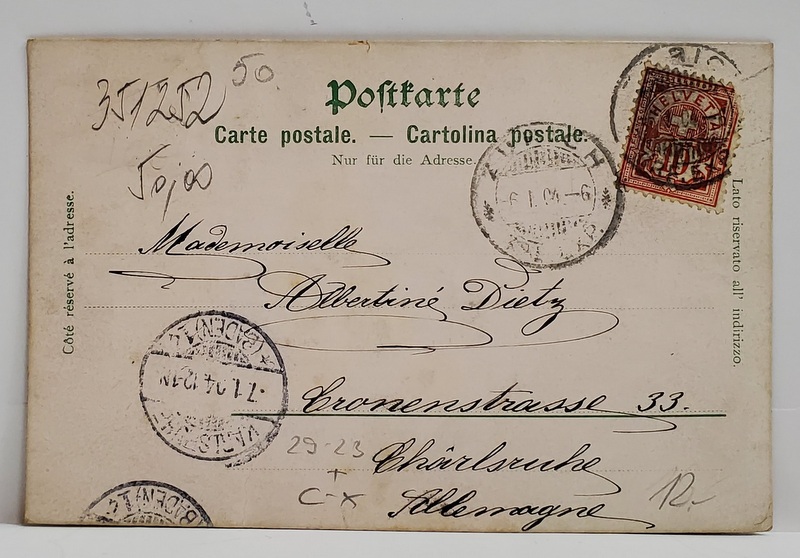 351252
50.
50,00
Postkarte
Carte postale. — Cartolina postale.
Nur für die Adresse.
HELVETIA
10
ZÜRICH
-6.1.04.-6
Côté réservé à l'adresse.
Lato riservato all' indirizzo.
Mademoiselle
Albertine Dietz
Cronenstrasse 33.
Chârlsruhe
Allemagne
(BADEN) 1.4
7.1.04.12-1N
KARLSRUHE
29-23
+
C-X
12.-
(BADEN) 1.4